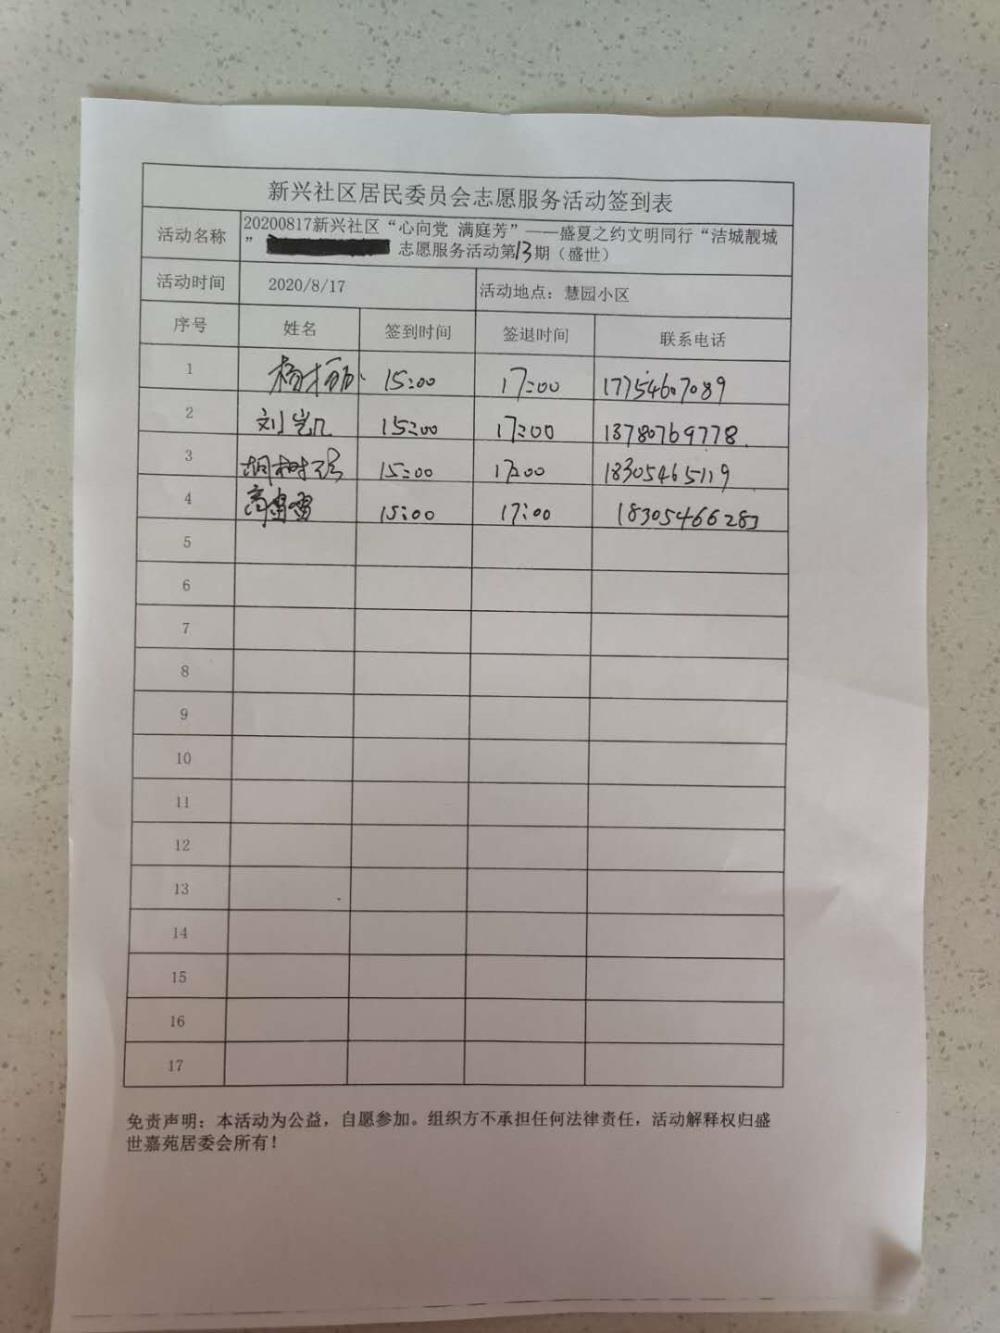 新兴社区居民委员会志愿服务活动签到表
活动名称 20200817新兴社区“心向党 满庭芳”——盛夏之约文明同行“洁城靓城
” 志愿服务活动第13期（盛世）
活动时间 2020/8/17 活动地点：慧园小区
序号 姓名 签到时间 签退时间 联系电话
1 15:00 17:00 17754607089
2 刘岩几 15:00 17:00 13780769778
3 胡树强 15:00 17:00 18305465119
4 高雷雷 15:00 17:00
5
6
7
8
9
10
11
12
13
14
15
16
17
免责声明：本活动为公益，自愿参加。组织方不承担任何法律责任，活动解释权归盛
世嘉苑居委会所有！